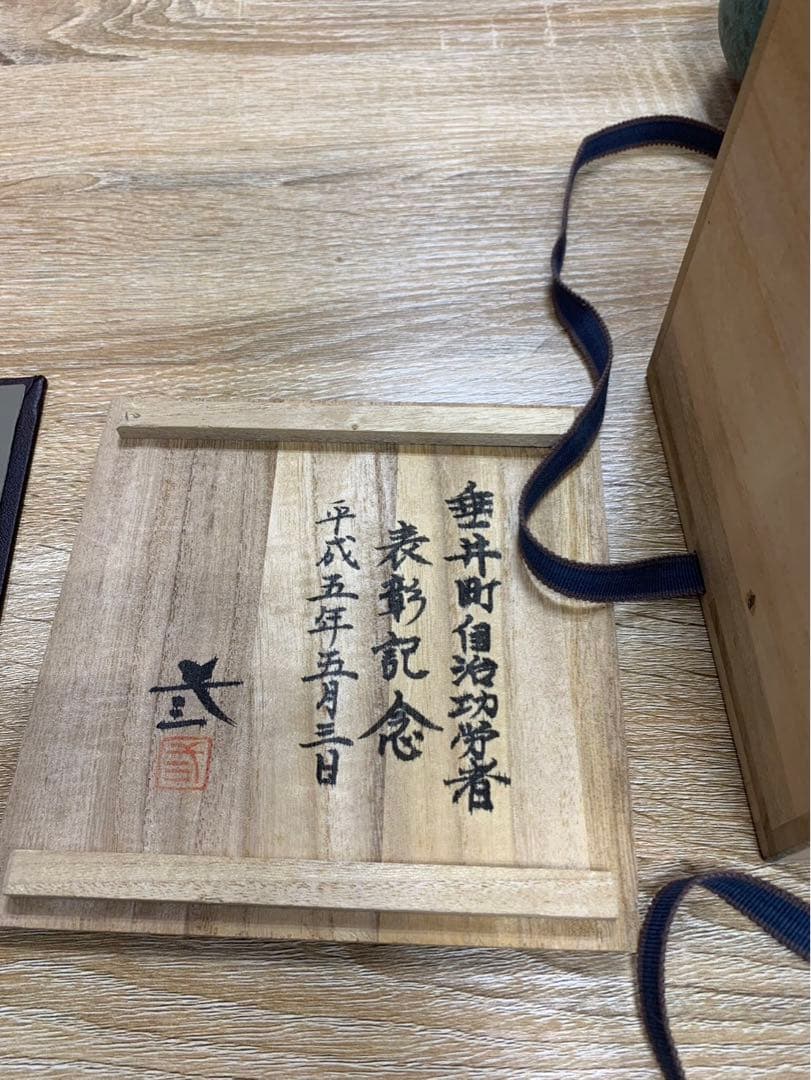 垂井町自治功労者
表彰記念
平成五年五月三日